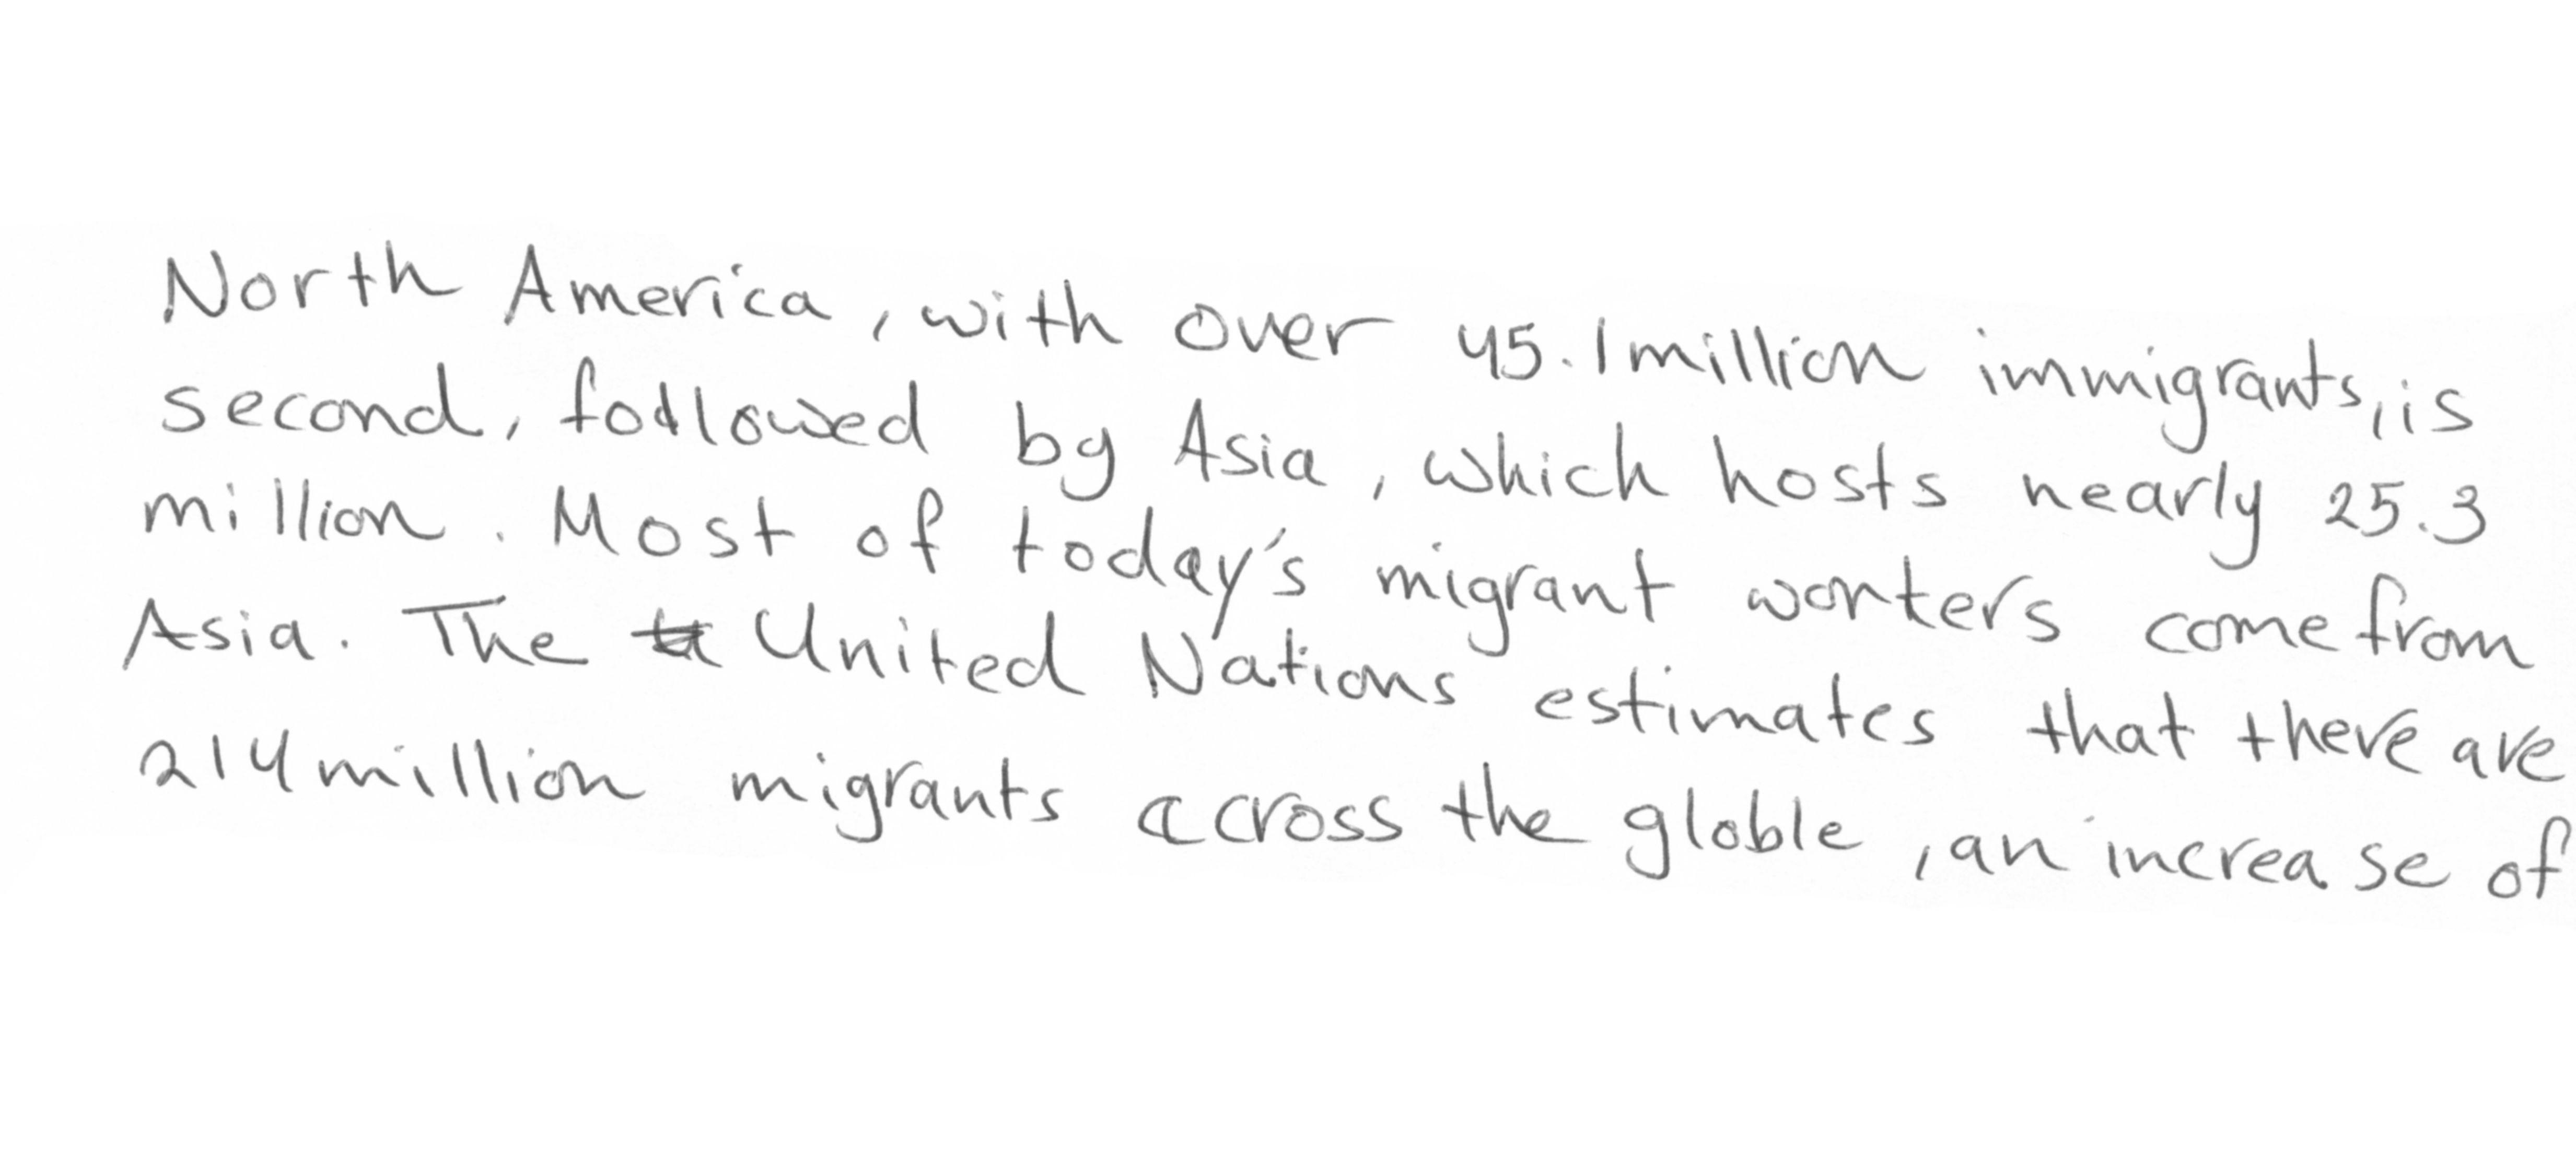 North America, with over 45.1million immigrants, is
second, followed by Asia, which hosts nearly 25.3
million. Most of today's migrant workers come from
Asia. The United Nations estimates that there are
214million migrants across the globle, an increase of